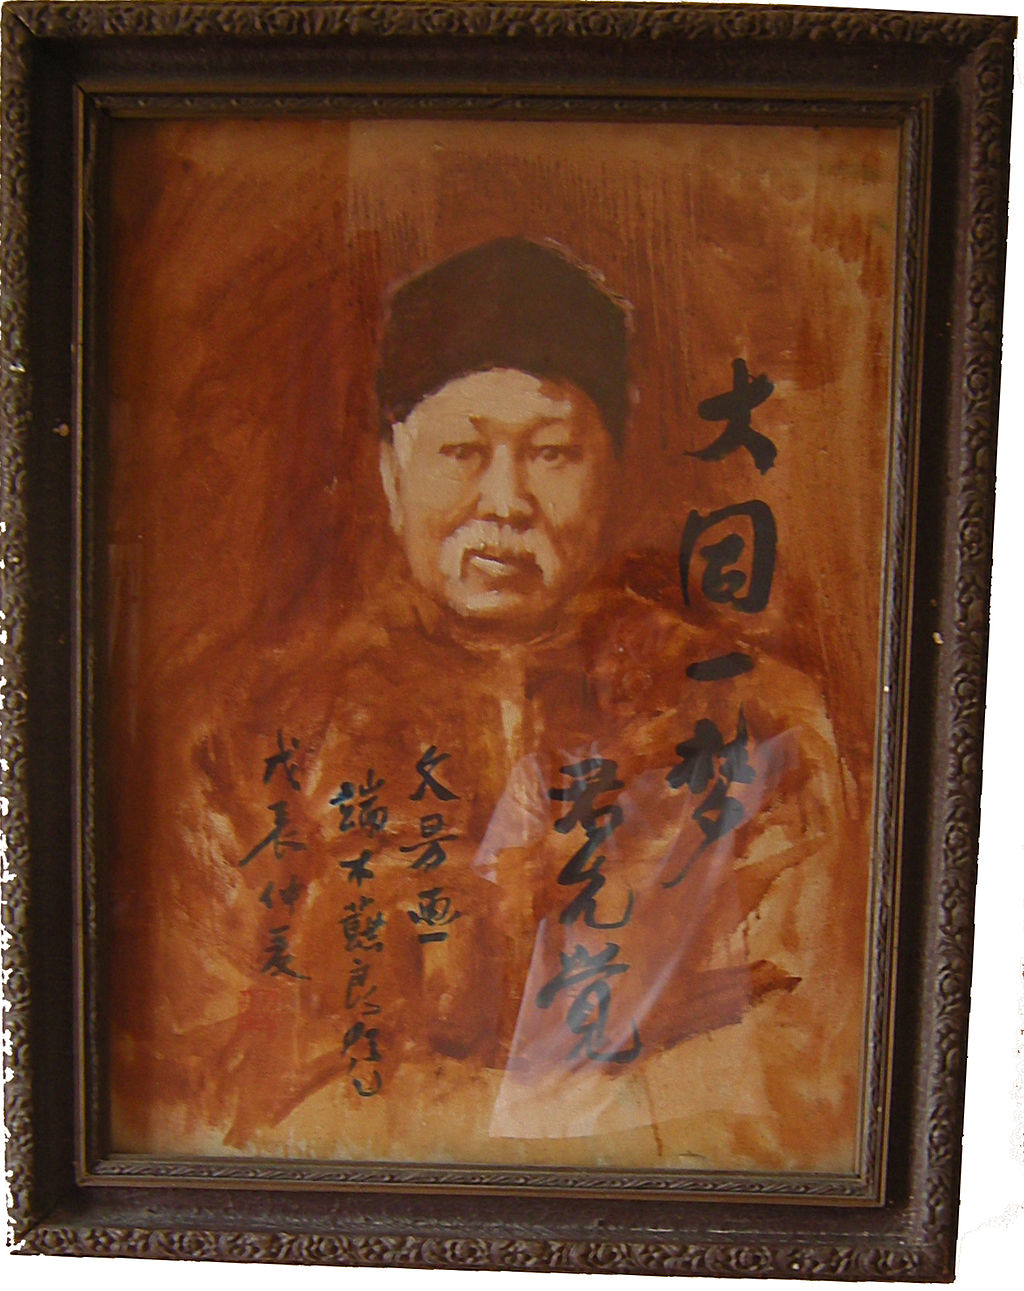 大同一梦
君先觉
文 画
端木蕻良题
戊辰仲夏